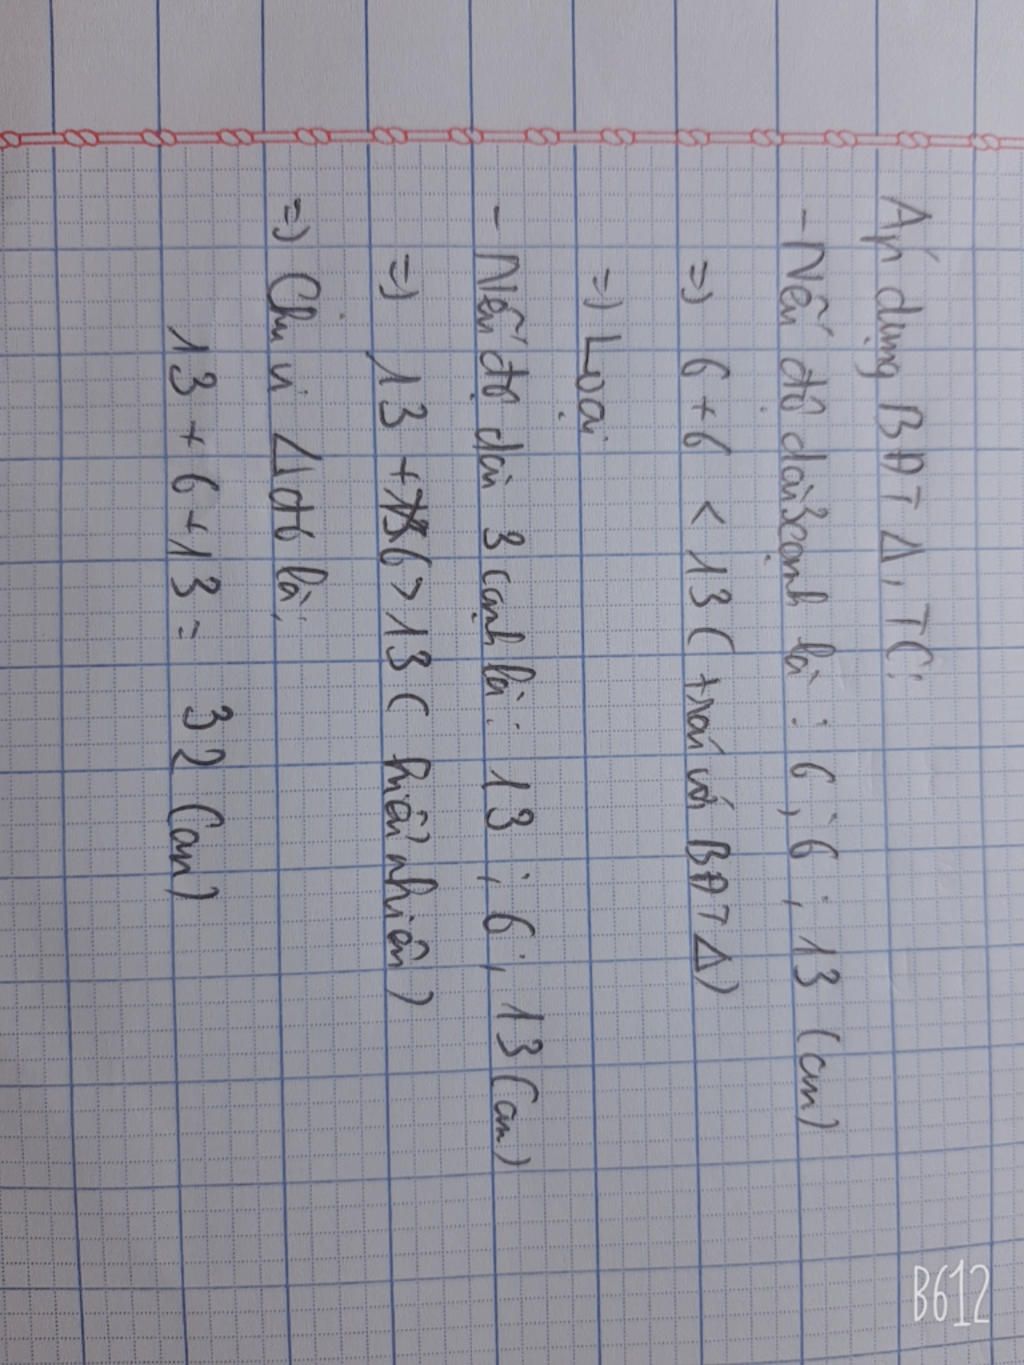 Áp dụng BĐT Δ, TC:
- Nếu độ dài 3 cạnh là : 6 ; 6 ; 13 (cm)
=> 6 + 6 < 13 ( trái với BĐT Δ)
=> Loại
- Nếu độ dài 3 cạnh là : 13 ; 6 ; 13 (cm)
=> 13 + 6 > 13 ( hiển nhiên)
=> Chu vi Δ đó là:
13 + 6 + 13 = 32 (cm)
B612